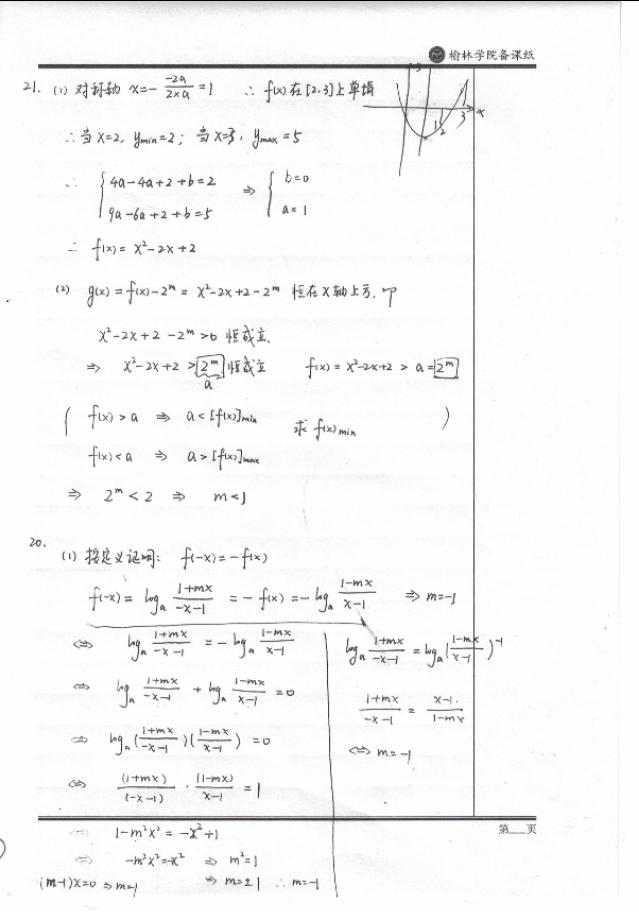 榆林学院备课纸
21. (1) 对称轴 x=-\frac{-2a}{2×a}=1 ∴ f(x)在[2,3]上单增
∴当x=2, y_{min}=2; 当x=3, y_{max}=5
∴ { 4a-4a+2+b=2 ⇒ { b=0
9a-6a+2+b=5 a=1
∴ f(x)=x²-2x+2
(2) g(x)=f(x)-2^m=x²-2x+2-2^m 恒在x轴上方.
x²-2x+2-2^m>0 恒成立.
⇒ x²-2x+2>2^m 恒成立 f(x)=x²-2x+2>a=2^m
a
( f(x)>a ⇒ a<[f(x)]_{min} 求f(x)_{min} )
f(x)<a ⇒ a>[f(x)]_{max}
⇒ 2^m<2 ⇒ m<1
20.
(1) 按定义证明: f(-x)=-f(x)
f(-x)=log_a \frac{1+mx}{-x-1}=-f(x)=-log_a \frac{1-mx}{x-1} ⇒ m=-1
⇔ log_a \frac{1+mx}{-x-1}=-log_a \frac{1-mx}{x-1}
⇔ log_a \frac{1+mx}{-x-1}+log_a \frac{1-mx}{x-1}=0
⇔ log_a(\frac{1+mx}{-x-1})(\frac{1-mx}{x-1})=0
⇔ \frac{(1+mx)}{(-x-1)}·\frac{(1-mx)}{x-1}=1
⇔ 1-m²x²=-x²+1
⇔ -m²x²=-x² ⇒ m²=1
(m-1)x=0 ⇒ m=1 ⇒ m=±1 ∴ m=-1
log_a \frac{1+mx}{-x-1}=log_a(\frac{1-mx}{x-1})^{-1}
\frac{1+mx}{-x-1}=\frac{x-1}{1-mx}
⇔ m=-1
第 页
1 2 3 x